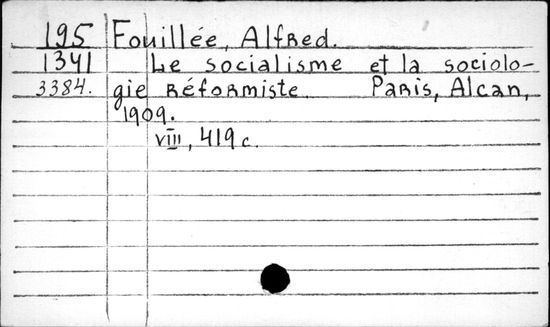 195 Fouillée, Alfred.
1341 Le socialisme et la sociolo-
3384. gie réformiste. Paris, Alcan,
1909.
VIII, 419 c.